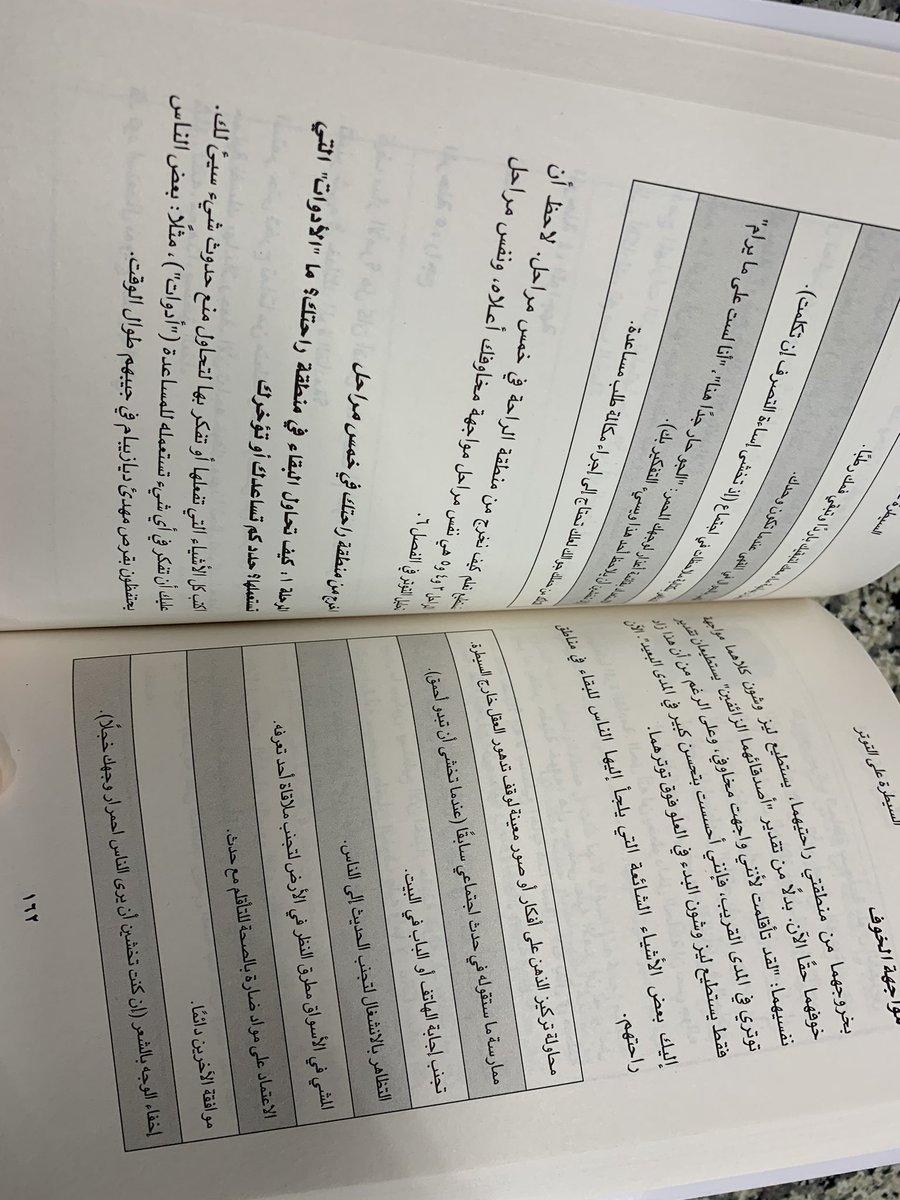 السيطرة على التوتر
مواجهة الخوف
بخروجهما من منطقتي راحتيهما، يستطيع ليز وشون كلاهما مواجهة
خوفهما حقًا الآن. بدلًا من تقدير "أصدقائهما الزائفين" يستطيعان تقدير
نفسيهما: "لقد تأقلمت لأنني واجهت مخاوفي، وعلى الرغم من أن هذا زاد
توتري في المدى القريب، فإنني أحسست بتحسن كبير في المدى البعيد". الآن
فقط يستطيع ليز وشون البدء في العلو فوق توترهما.
إليك بعض الأشياء الشائعة التي يلجأ إليها الناس للبقاء في مناطق
راحتهم.
محاولة تركيز الذهن على أفكار أو صور معينة لوقف تدهور العقل خارج السيطرة.
ممارسة ما ستقوله في حدث اجتماعي سابقًا (عندما تخشى أن تبدو أحمق).
تجنب إجابة الهاتف أو الباب في البيت.
التظاهر بالانشغال لتجنب الحديث إلى الناس.
المشي في الأسواق مطرق النظر في الأرض لتجنب ملاقاة أحد تعرفه.
الاعتماد على مواد ضارة بالصحة للتأقلم مع حدث.
موافقة الآخرين دائمًا.
إخفاء الوجه بالشعر (إن كنت تخشين أن يرى الناس احمرار وجهك خجلًا).
١٦٢
السيطرة
وتبقي فمك رطبًا.
عندما تكون وحدك.
في اجتماع (إذ تخشى إساءة التصرف إن تكلمت).
لوجهك المحمر: "الجو حار جدًا هنا"، "أنا لست على ما يرام"
هذا ويسيء التفكير بك).
تحتاج إلى إجراء مكالة طلب مساعدة.
نتعلم كيف نخرج من منطقة الراحة في خمس مراحل. لاحظ أن
٣ و٤ و٥ هي نفس مراحل مواجهة مخاوفك أعلاه، ونفس مراحل
التوتر في الفصل ٦.
اخرج من منطقة راحتك في خمس مراحل
المرحلة ١. كيف تحاول البقاء في منطقة راحتك؟ ما "الأدوات" التي
تستعملها؟ حدد كم تساعدك أو تؤخرك
اكتب كل الأشياء التي تفعلها أو تفكر بها لتحاول منع حدوث شيء سيئ لك.
عليك أن تفكر في أي شيء تستعمله للمساعدة ("أدوات")، مثلًا: بعض الناس
يحتفظون بقرص مهدئ ديازيبام في جيبهم طوال الوقت.